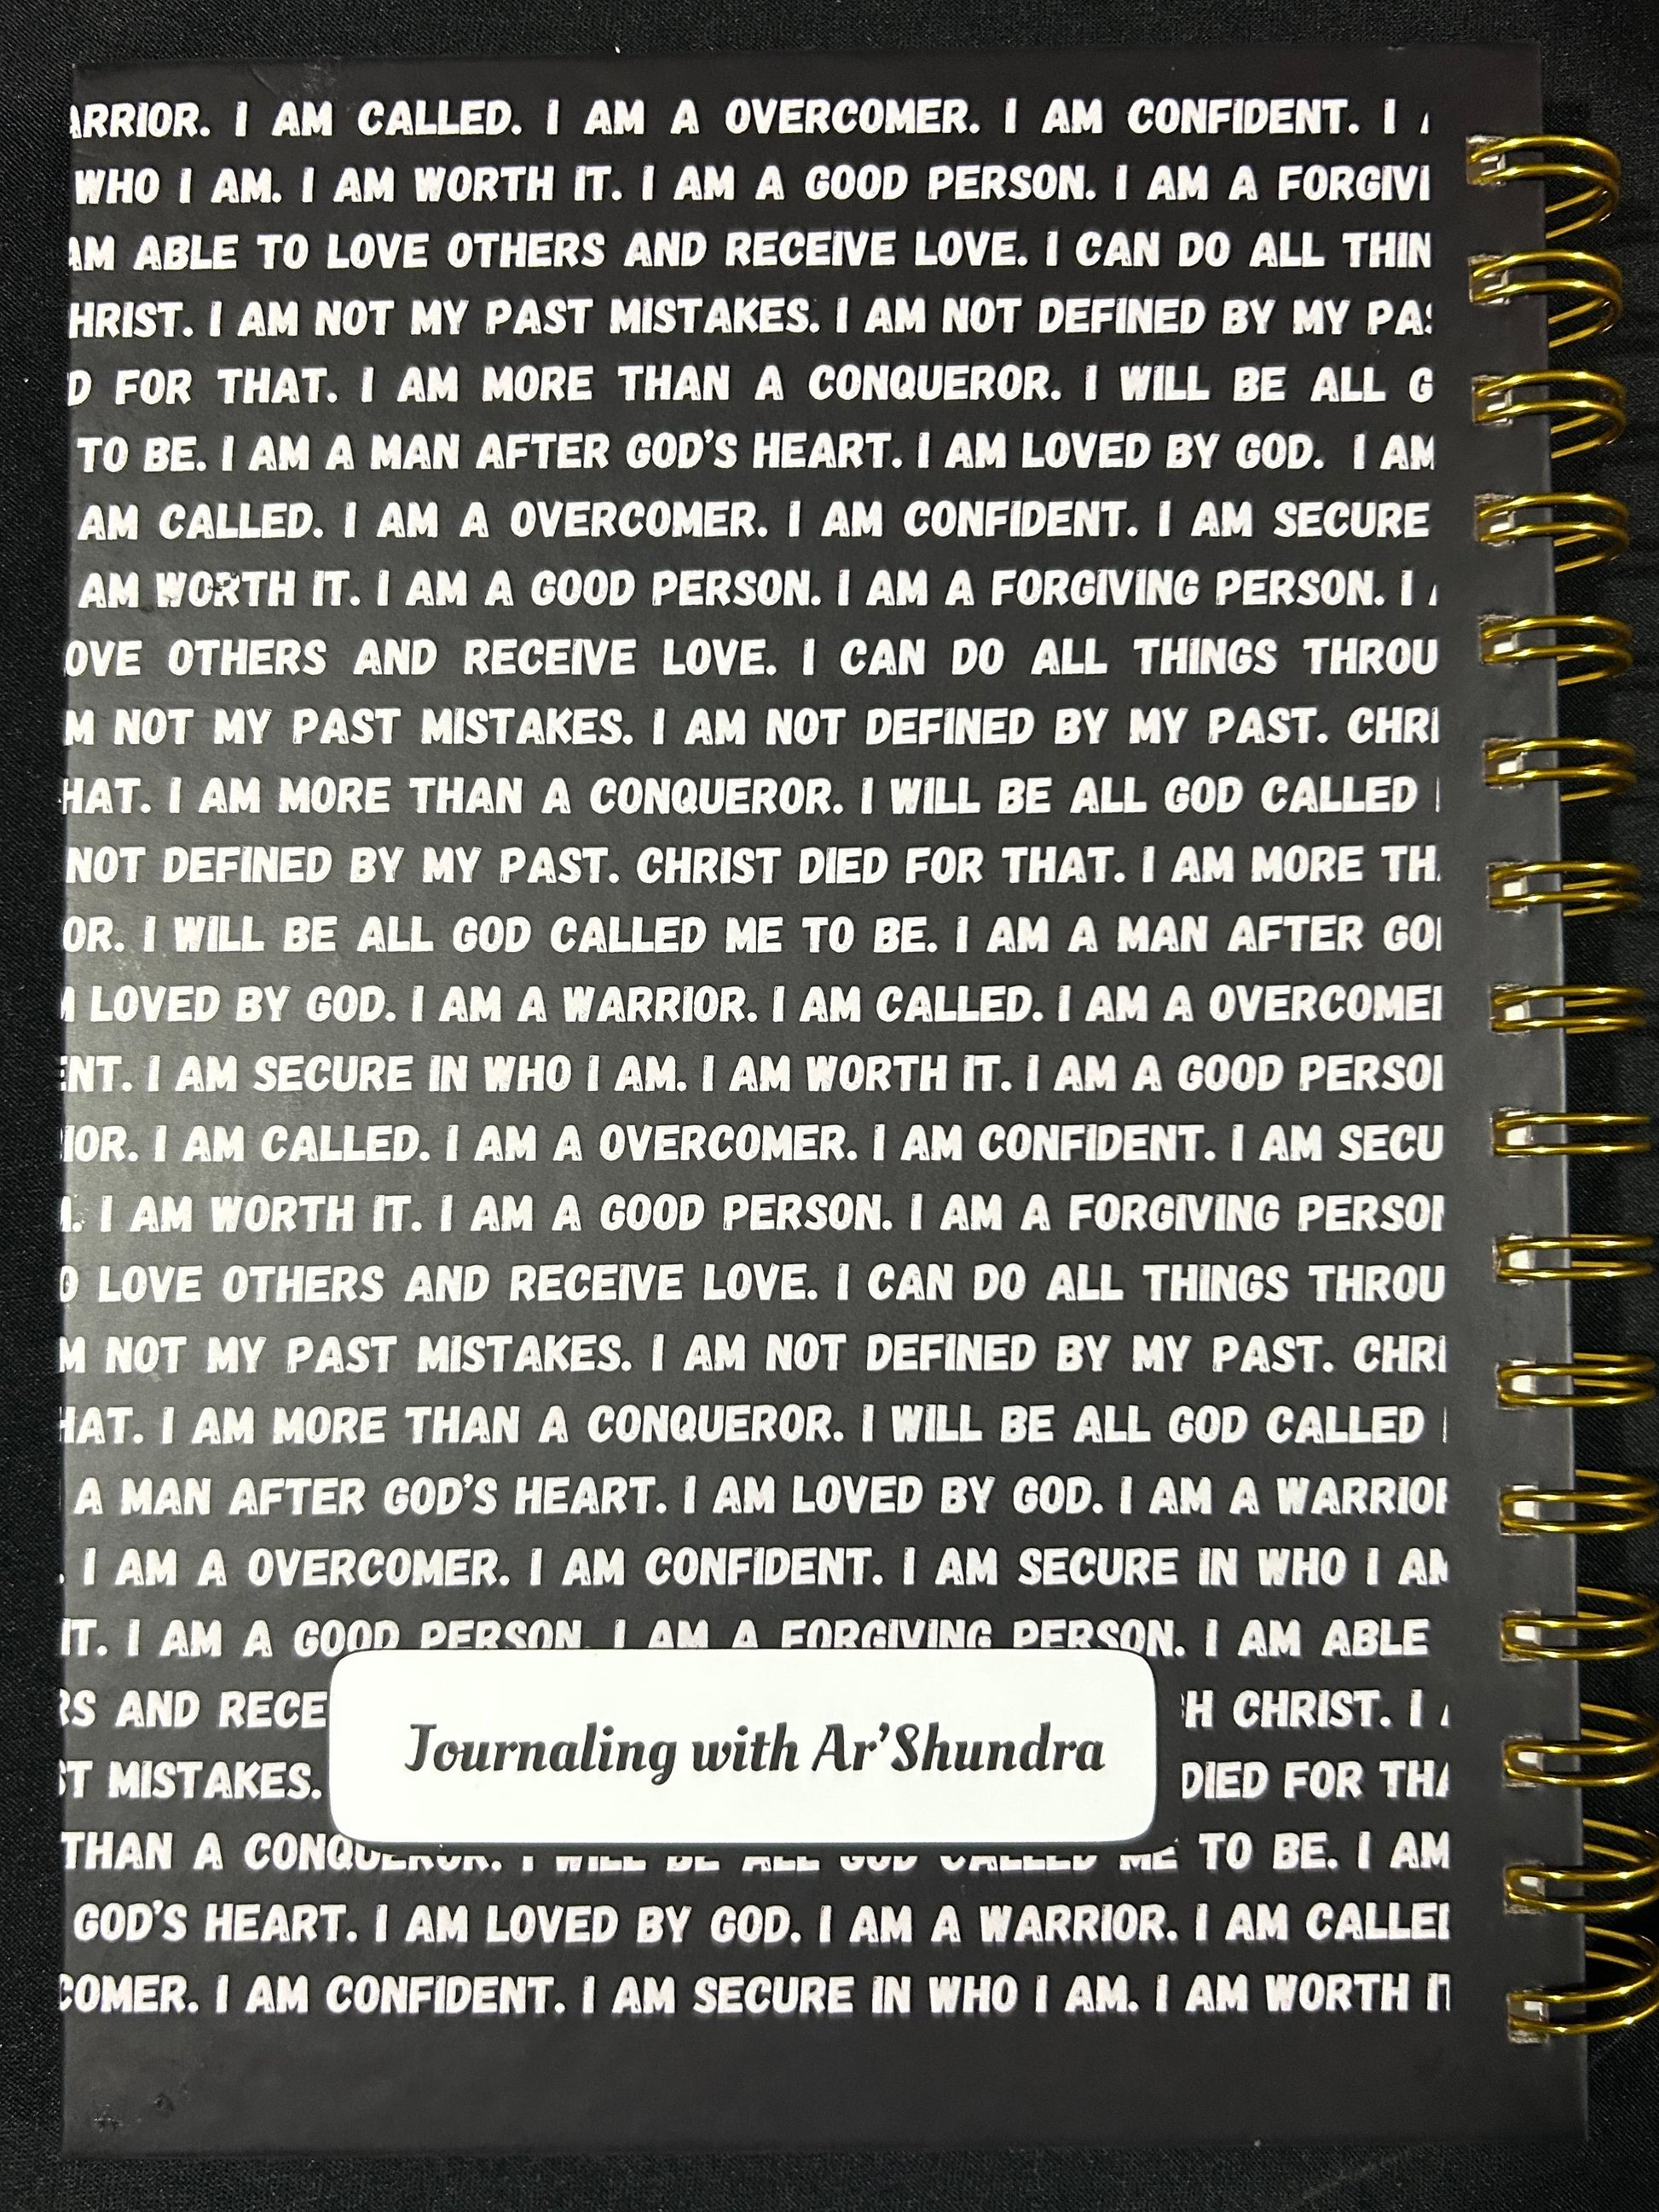 ARRIOR. I AM CALLED. I AM A OVERCOMER. I AM CONFIDENT. I
WHO I AM. I AM WORTH IT. I AM A GOOD PERSON. I AM A FORGIVI
AM ABLE TO LOVE OTHERS AND RECEIVE LOVE. I CAN DO ALL THIN
HRIST. I AM NOT MY PAST MISTAKES. I AM NOT DEFINED BY MY PAS
D FOR THAT. I AM MORE THAN A CONQUEROR. I WILL BE ALL G
TO BE. I AM A MAN AFTER GOD'S HEART. I AM LOVED BY GOD. I AM
AM CALLED. I AM A OVERCOMER. I AM CONFIDENT. I AM SECURE
AM WORTH IT. I AM A GOOD PERSON. I AM A FORGIVING PERSON. I
OVE OTHERS AND RECEIVE LOVE. I CAN DO ALL THINGS THROU
M NOT MY PAST MISTAKES. I AM NOT DEFINED BY MY PAST. CHRI
HAT. I AM MORE THAN A CONQUEROR. I WILL BE ALL GOD CALLED
NOT DEFINED BY MY PAST. CHRIST DIED FOR THAT. I AM MORE TH
OR. I WILL BE ALL GOD CALLED ME TO BE. I AM A MAN AFTER GO
M LOVED BY GOD. I AM A WARRIOR. I AM CALLED. I AM A OVERCOME
ENT. I AM SECURE IN WHO I AM. I AM WORTH IT. I AM A GOOD PERSO
IOR. I AM CALLED. I AM A OVERCOMER. I AM CONFIDENT. I AM SECU
. I AM WORTH IT. I AM A GOOD PERSON. I AM A FORGIVING PERSO
O LOVE OTHERS AND RECEIVE LOVE. I CAN DO ALL THINGS THROU
M NOT MY PAST MISTAKES. I AM NOT DEFINED BY MY PAST. CHRI
HAT. I AM MORE THAN A CONQUEROR. I WILL BE ALL GOD CALLED
A MAN AFTER GOD'S HEART. I AM LOVED BY GOD. I AM A WARRIOR
. I AM A OVERCOMER. I AM CONFIDENT. I AM SECURE IN WHO I AM
IT. I AM A GOOD PERSON. I AM A FORGIVING PERSON. I AM ABLE
RS AND RECE H CHRIST. I
Journaling with Ar'Shundra
ST MISTAKES. DIED FOR THA
THAN A CONQUEROR. I WILL BE ALL GOD CALLED ME TO BE. I AM
GOD'S HEART. I AM LOVED BY GOD. I AM A WARRIOR. I AM CALLE
COMER. I AM CONFIDENT. I AM SECURE IN WHO I AM. I AM WORTH IT